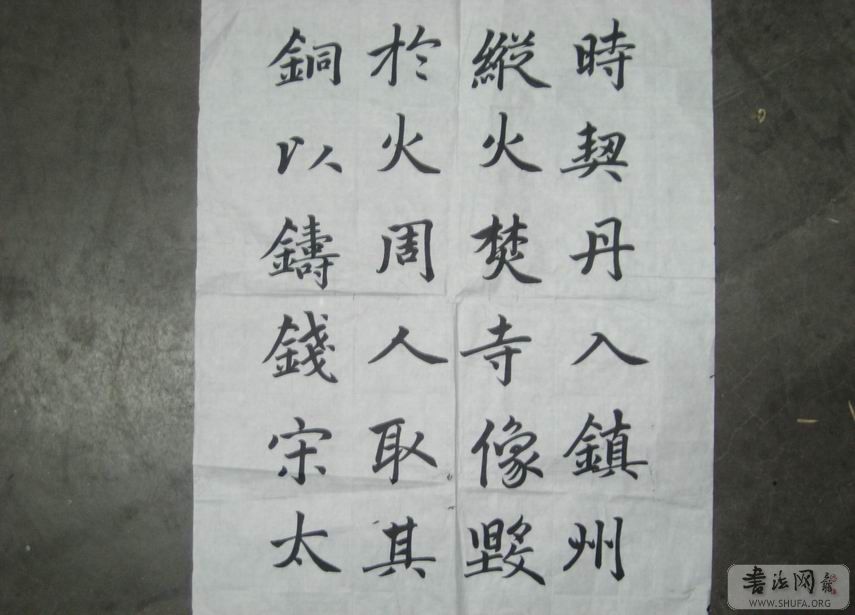 時契丹入鎮州
縱火焚寺像毀
於火周人取其
銅以鑄錢宋太
書法网
WWW.SHUFA.ORG